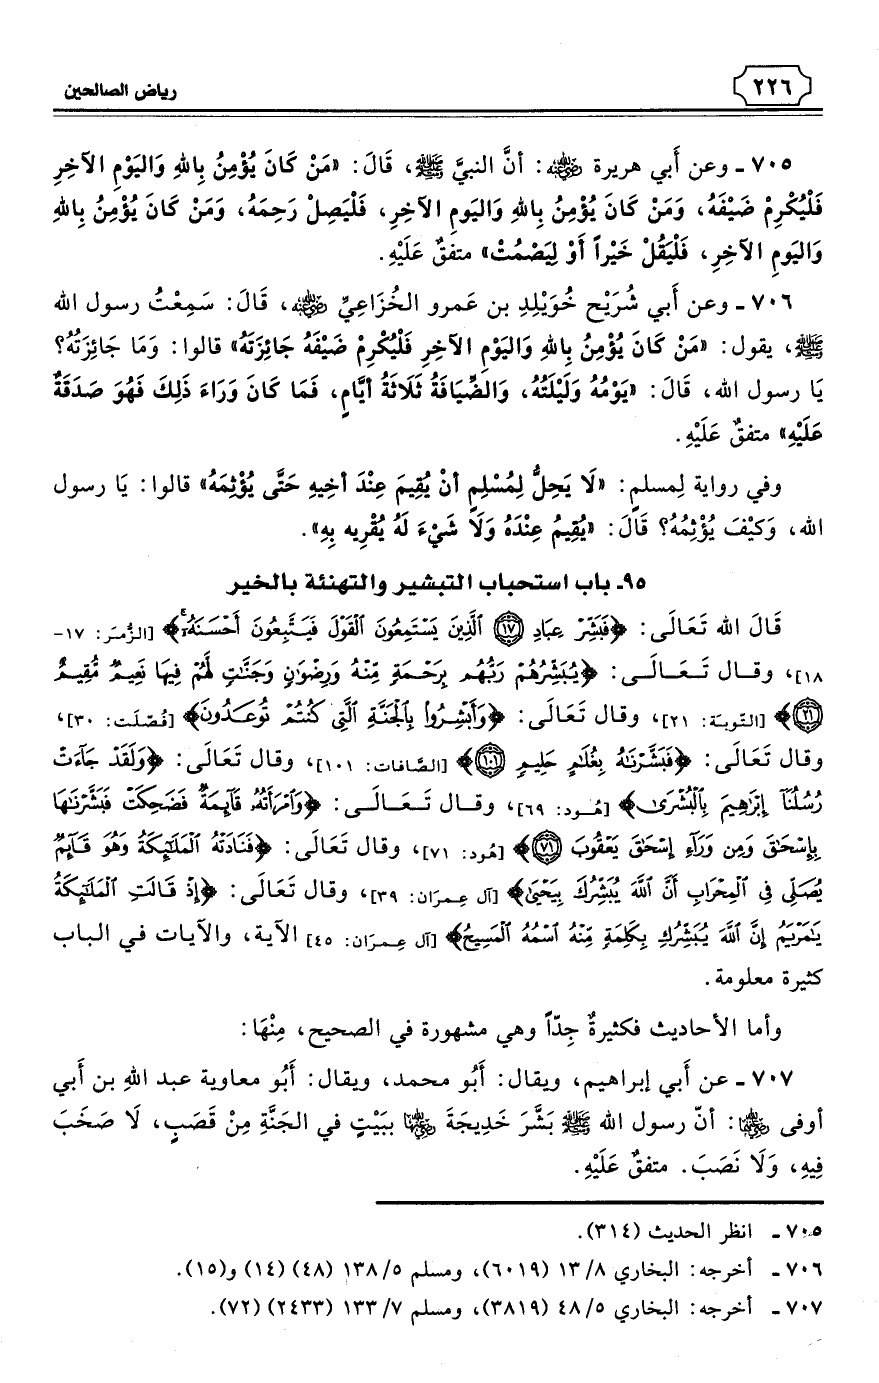 ٢٢٦ رياض الصالحين
٧٠٥ ـ وعن أَبي هريرة ﵁: أنَّ النبيَّ ﷺ، قَالَ: «مَنْ كَانَ يُؤْمِنُ بِاللهِ وَاليَوْمِ الآخِرِ
فَلْيُكْرِمْ ضَيْفَهُ، وَمَنْ كَانَ يُؤْمِنُ بِاللهِ وَاليَومِ الآخِرِ، فَلْيَصِلْ رَحِمَهُ، وَمَنْ كَانَ يُؤْمِنُ بِاللهِ
وَاليَومِ الآخِرِ، فَلْيَقُلْ خَيْراً أَوْ لِيَصْمُتْ» متفقٌ عَلَيْهِ.
٧٠٦ ـ وعن أَبي شُرَيْح خُوَيْلِدِ بن عَمرو الخُزَاعِيِّ ﵁، قَالَ: سَمِعْتُ رسول الله
ﷺ، يقول: «مَنْ كَانَ يُؤْمِنُ بِاللهِ وَاليَوْمِ الآخِرِ فَلْيُكْرِمْ ضَيْفَهُ جَائِزَتَهُ» قالوا: وَمَا جَائِزَتُهُ؟
يَا رسول الله، قَالَ: «يَوْمُهُ وَلَيْلَتُهُ، وَالضِّيَافَةُ ثَلَاثَةُ أيَّامٍ، فَمَا كَانَ وَرَاءَ ذَلِكَ فَهُوَ صَدَقَةٌ
عَلَيْهِ» متفقٌ عَلَيْهِ.
وفي رواية لِمسلمٍ: «لَا يَحِلُّ لِمُسْلِمٍ أنْ يُقِيمَ عِنْدَ أخِيهِ حَتَّى يُؤْثِمَهُ» قالوا: يَا رسول
الله، وَكيْفَ يُؤْثِمُهُ؟ قَالَ: «يُقِيمُ عِنْدَهُ وَلَا شَيْءَ لَهُ يُقْرِيه بِهِ».
٩٥ـ باب استحباب التبشير والتهنئة بالخير
قَالَ الله تَعَالَى: ﴿فَبَشِّرْ عِبَادِ ١٧ ٱلَّذِينَ يَسْتَمِعُونَ ٱلْقَوْلَ فَيَتَّبِعُونَ أَحْسَنَهُۥٓ﴾ [الزُّمَر: ١٧-
١٨]، وقـال تَـعَـالَـى: ﴿يُبَشِّرُهُمْ رَبُّهُم بِرَحْمَةٍ مِّنْهُ وَرِضْوَٰنٍ وَجَنَّٰتٍ لَّهُمْ فِيهَا نَعِيمٌ مُّقِيمٌ
٢١﴾ [التّوبَة: ٢١]، وقال تَعَالَى: ﴿وَأَبْشِرُوا۟ بِٱلْجَنَّةِ ٱلَّتِى كُنتُمْ تُوعَدُونَ﴾ [فُصّلَت: ٣٠]،
وقال تَعَالَى: ﴿فَبَشَّرْنَٰهُ بِغُلَٰمٍ حَلِيمٍ ١٠١﴾ [الصَّافات: ١٠١]، وقال تَعَالَى: ﴿وَلَقَدْ جَآءَتْ
رُسُلُنَآ إِبْرَٰهِيمَ بِٱلْبُشْرَىٰ﴾ [هُـود: ٦٩]، وقـال تَـعَـالَـى: ﴿وَٱمْرَأَتُهُۥ قَآئِمَةٌ فَضَحِكَتْ فَبَشَّرْنَٰهَا
بِإِسْحَٰقَ وَمِن وَرَآءِ إِسْحَٰقَ يَعْقُوبَ ٧١﴾ [هُود: ٧١]، وقال تَعَالَى: ﴿فَنَادَتْهُ ٱلْمَلَٰٓئِكَةُ وَهُوَ قَآئِمٌ
يُصَلِّى فِى ٱلْمِحْرَابِ أَنَّ ٱللَّهَ يُبَشِّرُكَ بِيَحْيَىٰ﴾ [آل عِـمرَان: ٣٩]، وقال تَعَالَى: ﴿إِذْ قَالَتِ ٱلْمَلَٰٓئِكَةُ
يَٰمَرْيَمُ إِنَّ ٱللَّهَ يُبَشِّرُكِ بِكَلِمَةٍ مِّنْهُ ٱسْمُهُ ٱلْمَسِيحُ﴾ [آل عِـمرَان: ٤٥] الآية، والآيات في الباب
كثيرة معلومة.
وأما الأحاديث فكثيرةٌ جِدّاً وهي مشهورة في الصحيح، مِنْهَا:
٧٠٧ ـ عن أَبي إبراهيم، ويقال: أَبُو محمد، ويقال: أَبُو معاوية عبد اللهِ بن أَبي
أوفى ﵄: أنّ رسول الله ﷺ بَشَّرَ خَدِيجَةَ ﵂ ببَيْتٍ في الجَنَّةِ مِنْ قَصَبٍ، لَا صَخَبَ
فِيهِ، وَلَا نَصَبَ. متفقٌ عَلَيْهِ.
٧٠٥ ـ انظر الحديث (٣١٤).
٧٠٦ ـ أخرجه: البخاري ٨/ ١٣ (٦٠١٩)، ومسلم ٥/ ١٣٨ (٤٨) (١٤) و(١٥).
٧٠٧ ـ أخرجه: البخاري ٥/ ٤٨ (٣٨١٩)، ومسلم ٧/ ١٣٣ (٢٤٣٣) (٧٢).